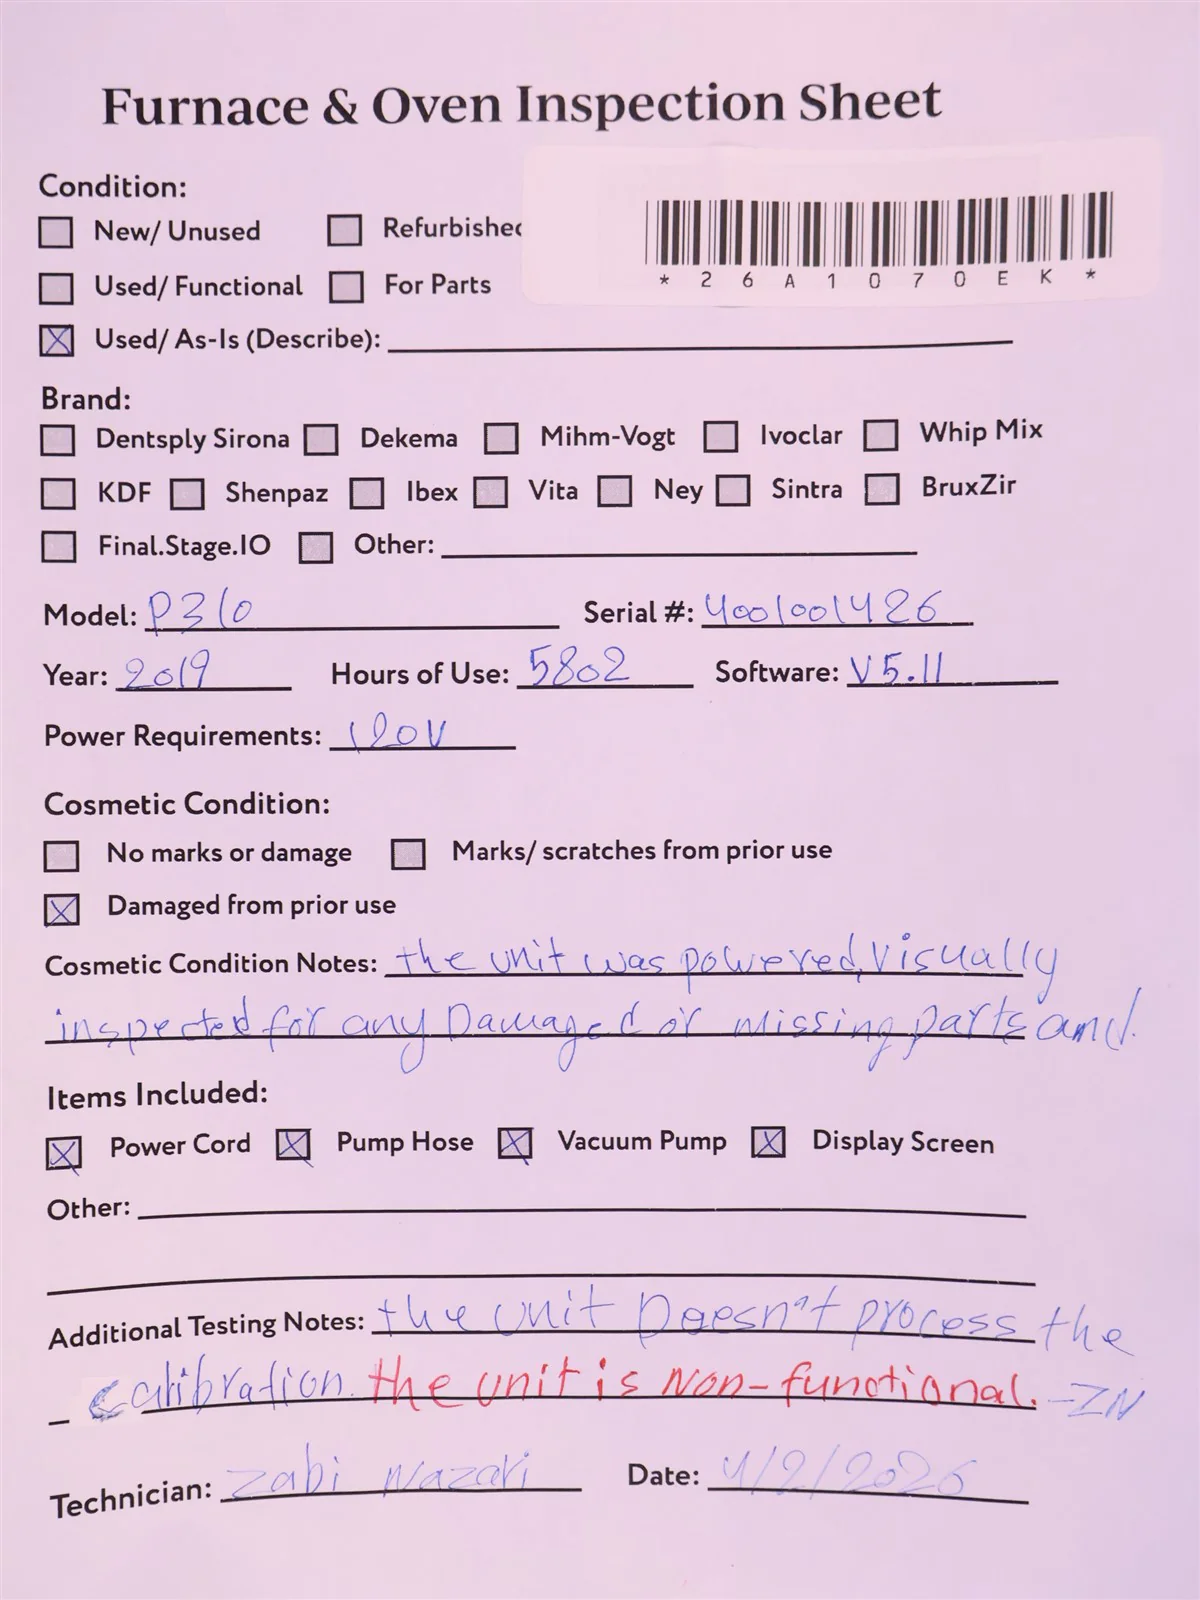 Furnace & Oven Inspection Sheet
Condition:
New/ Unused Refurbished
* 2 6 A 1 0 7 0 E K *
Used/ Functional For Parts
Used/ As-Is (Describe):
Brand:
Dentsply Sirona Dekema Mihm-Vogt Ivoclar Whip Mix
KDF Shenpaz Ibex Vita Ney Sintra BruxZir
Final.Stage.IO Other:
Model: P310 Serial #: 4001001426
Year: 2019 Hours of Use: 5802 Software: V 5.11
Power Requirements: 120V
Cosmetic Condition:
No marks or damage Marks/ scratches from prior use
Damaged from prior use
Cosmetic Condition Notes: the unit was powered, visually
inspected for any Damaged or missing parts and.
Items Included:
Power Cord Pump Hose Vacuum Pump Display Screen
Other:
Additional Testing Notes: the unit Doesn't process the
calibration. the unit is Non-functional. -ZN
Technician: Zabi Nazari Date: 4/2/2026